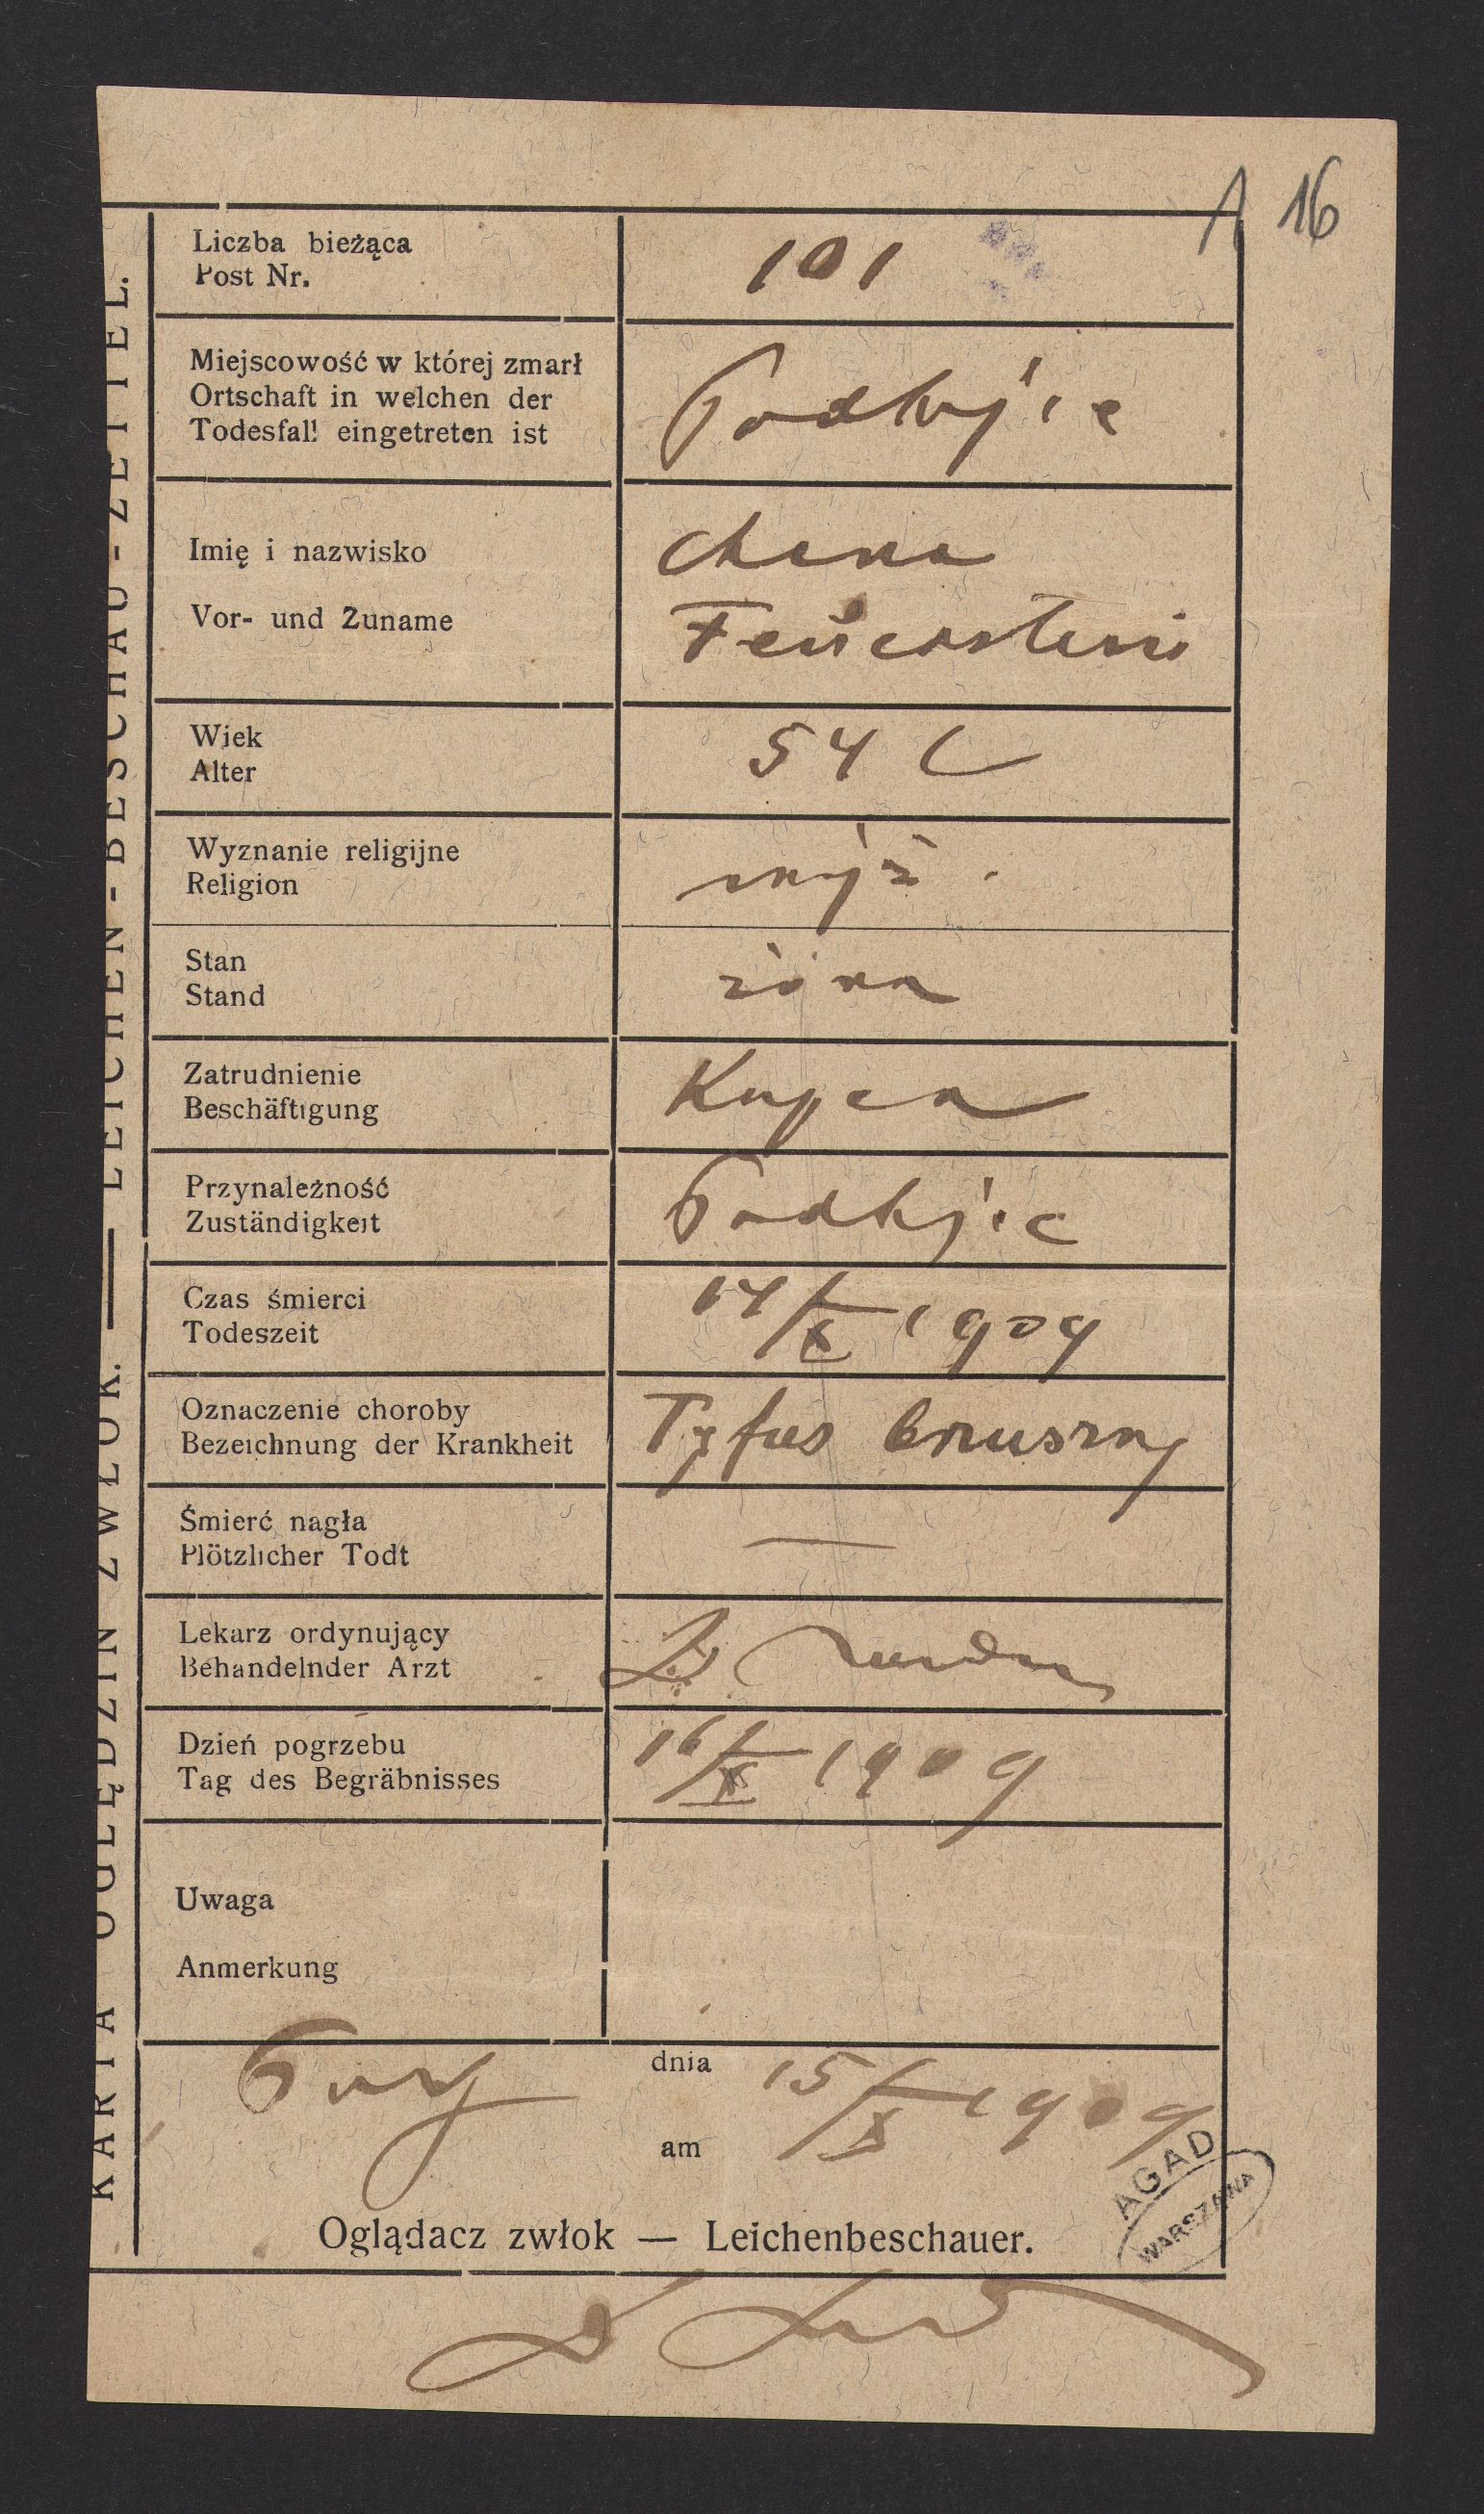 A 16
KARTA OGLĘDZIN ZWŁOK. — LEICHEN-BESCHAU-ZETTEL.
Liczba bieżąca
Post Nr.
101
Miejscowość w której zmarł
Ortschaft in welchen der
Todesfall eingetreten ist
Imię i nazwisko
Vor- und Zuname
Chana
Feuerstein
Wiek
Alter
54 l
Wyznanie religijne
Religion
mojż.
Stan
Stand
żona
Zatrudnienie
Beschäftigung
Kupca
Przynależność
Zuständigkeit
Czas śmierci
Todeszeit
14/X 1909
Oznaczenie choroby
Bezeichnung der Krankheit
Tyfus brzuszny
Śmierć nagła
Plötzlicher Todt
—
Lekarz ordynujący
Behandelnder Arzt
Dzień pogrzebu
Tag des Begräbnisses
16/X 1909
Uwaga
Anmerkung
dnia
am
15/X 1909
Oglądacz zwłok — Leichenbeschauer.
AGAD
WARSZAWA